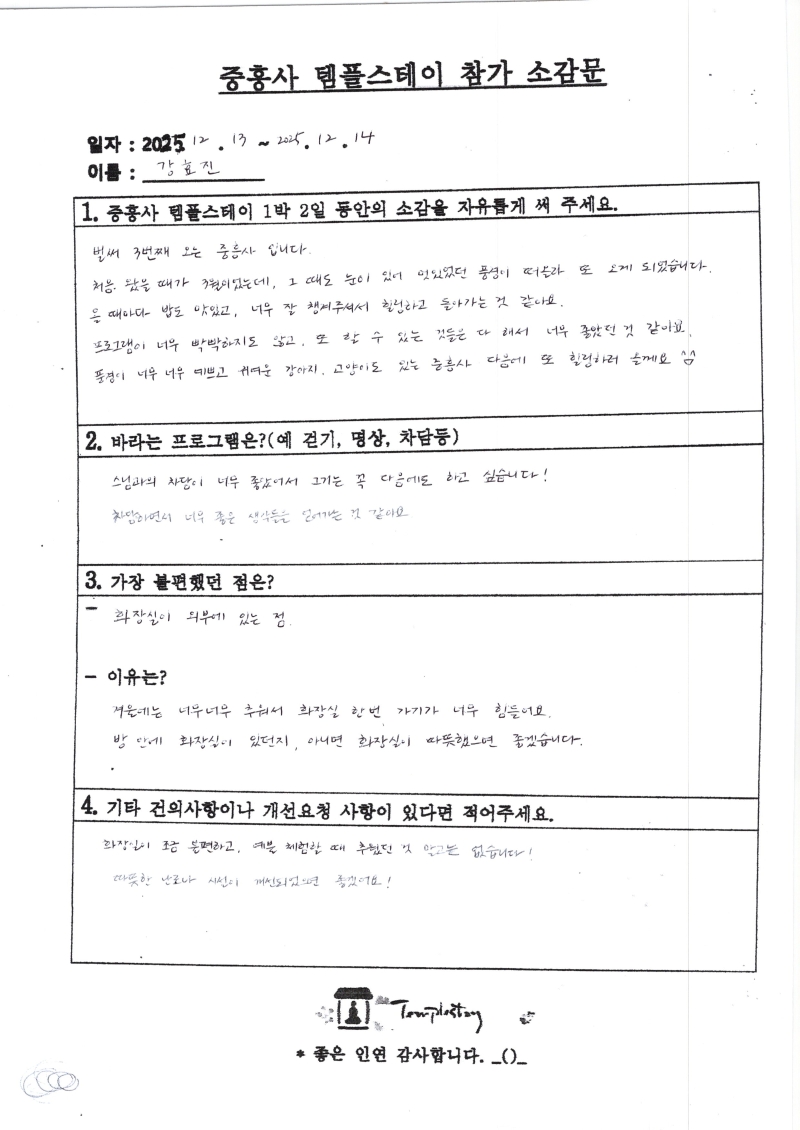 중흥사 템플스테이 참가 소감문
일자 : 2025. 12 . 13 ~ 2025. 12 . 14
이름 : 강효진
1. 중흥사 템플스테이 1박 2일 동안의 소감을 자유롭게 써 주세요.
벌써 3번째 오는 중흥사 입니다.
처음 왔을 때가 3월이었는데, 그 때도 눈이 있어 멋있었던 풍경이 떠올라 또 오게 되었습니다.
올 때마다 밥도 맛있고, 너무 잘 챙겨주셔서 힐링하고 돌아가는 것 같아요.
프로그램이 너무 빡빡하지도 않고, 또 할 수 있는 것들은 다 해서 너무 좋았던 것 같아요.
풍경이 너무 너무 예쁘고 귀여운 강아지, 고양이도 있는 중흥사 다음에 또 힐링하러 올게요 ^^
2. 바라는 프로그램은?(예 걷기, 명상, 차담등)
스님과의 차담이 너무 좋았어서 그거는 꼭 다음에도 하고 싶습니다!
차담하면서 너무 좋은 생각들을 얻어가는 것 같아요
3. 가장 불편했던 점은?
- 화장실이 외부에 있는 점.
- 이유는?
겨울에는 너무너무 추워서 화장실 한번 가기가 너무 힘들어요.
방 안에 화장실이 있던지, 아니면 화장실이 따뜻했으면 좋겠습니다.
4. 기타 건의사항이나 개선요청 사항이 있다면 적어주세요.
화장실이 조금 불편하고, 예불 체험할 때 추웠던 것 말고는 없습니다!
따뜻한 난로나 시설이 개선되었으면 좋겠어요!
Templestay
* 좋은 인연 감사합니다. _()_